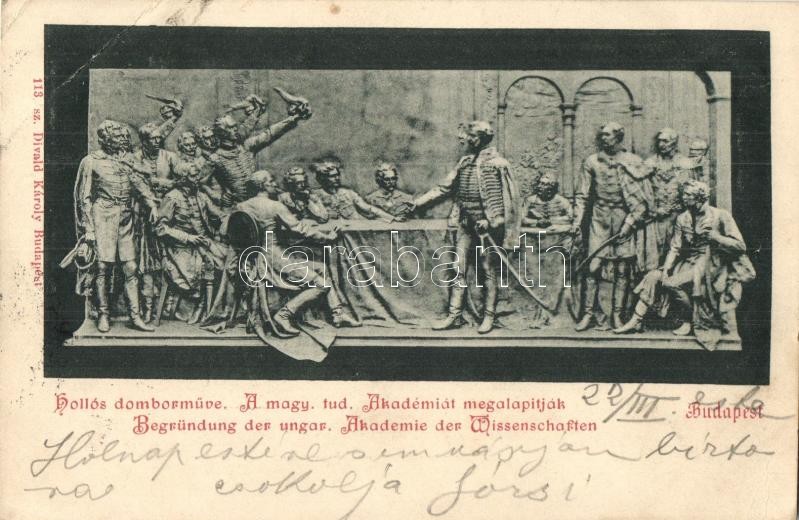 113 sz. Divald Károly Budapest
darabanth
Hollós domborműve. A magy. tud. Akadémiát megalapitják
Begründung der ungar. Akademie der Wissenschaften
Budapest
22/III este
Holnap estére
csokolja